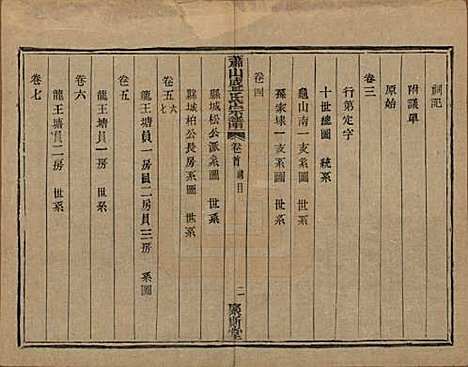 祠記
附議單
原始
卷三
行第定字
十世總圖 統系
龜山南一支系圖
孫家埭一支系圖
卷四
蕭山盛氏宗譜
卷首 總目
二
縣城松公派系圖
縣城柏公長房系圖
卷五六
龍王塘員一房員二房員三房 系圖
卷五
龍王塘員一房 世系
卷六
龍王塘員二房 世系
卷七